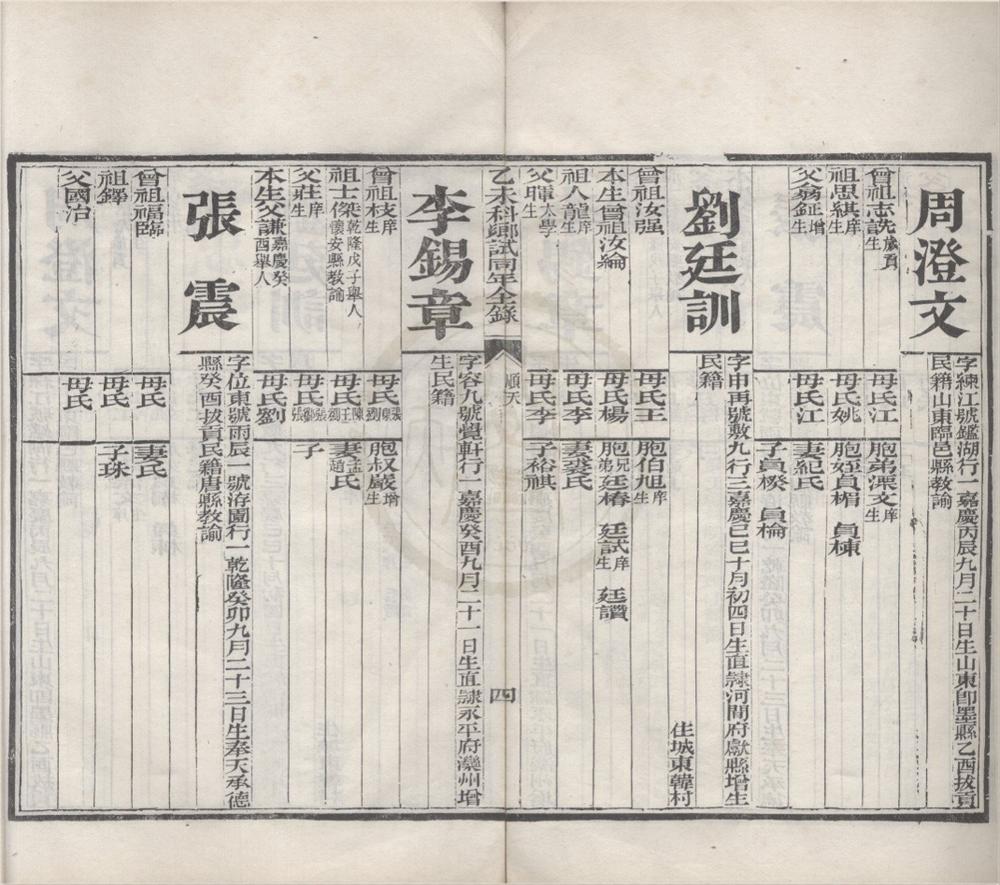 周澄文
字練江號鑑湖行一嘉慶丙辰九月二十日生山東卽墨縣乙酉拔貢
民籍山東臨邑縣教諭
曾祖志詵歲貢生
母氏江
胞弟溧文庠生
祖思綨庠生
母氏姚
胞姪員楣 員棟
父翁鉦增生
母氏江
妻紀氏
子員楑 員棆
劉廷訓
字申再號敷九行三嘉慶己巳十月初四日生直隸河間府獻縣增生
民籍
住城東韓村
曾祖汝强
母氏王
胞伯旭庠生
本生曾祖汝綸
母氏楊
胞兄弟廷椿 廷試庠生 廷讚
祖人龍庠生
母氏李
妻裘氏
父暉太學生
母氏李
子裕祺
乙未科鄕試同年全錄
順天
四
李錫章
字容九號覺軒行一嘉慶癸酉九月二十一日生直隸永平府灤州增
生民籍
曾祖枝庠生
母氏張東劉
胞叔嚴增生
祖士傑乾隆戊子舉人懷安縣教諭
母氏陳王
妻孟趙氏
父莊庠生
母氏張鄒張
子
本生父謙嘉慶癸酉舉人
母氏劉
張震
字位東號雨辰一號洊園行一乾隆癸卯九月二十三日生奉天承德
縣癸酉拔貢民籍唐縣教諭
曾祖福臨
母氏
妻氏
祖鐸
母氏
子珠
父國治
母氏